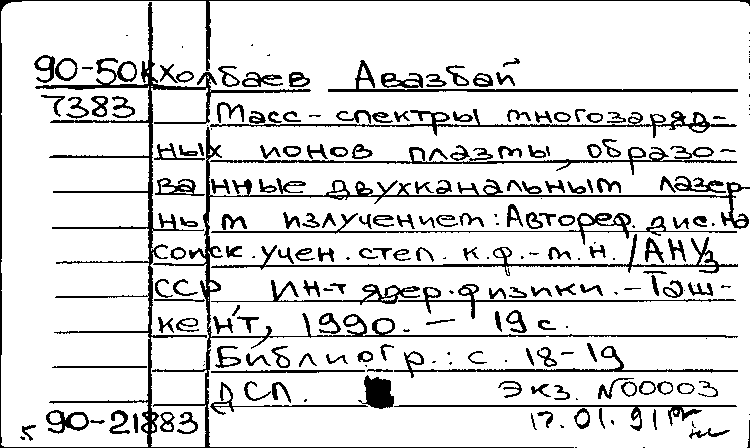 90-50К Холбаев Авазбай
7383 Масс-спектры многозаряд-
ных ионов плазмы, образо-
ванные двухканальным лазер-
ным излучением: Автореф. дис. на
соиск. учен. степ. к.ф.-м.н. / АН Уз
ССР Ин-т ядер. физики. - Таш-
кент, 1990. - 19 с.
Библиогр.: с. 18-19
ДСП. Экз. N00003
90-21883 17.01.91